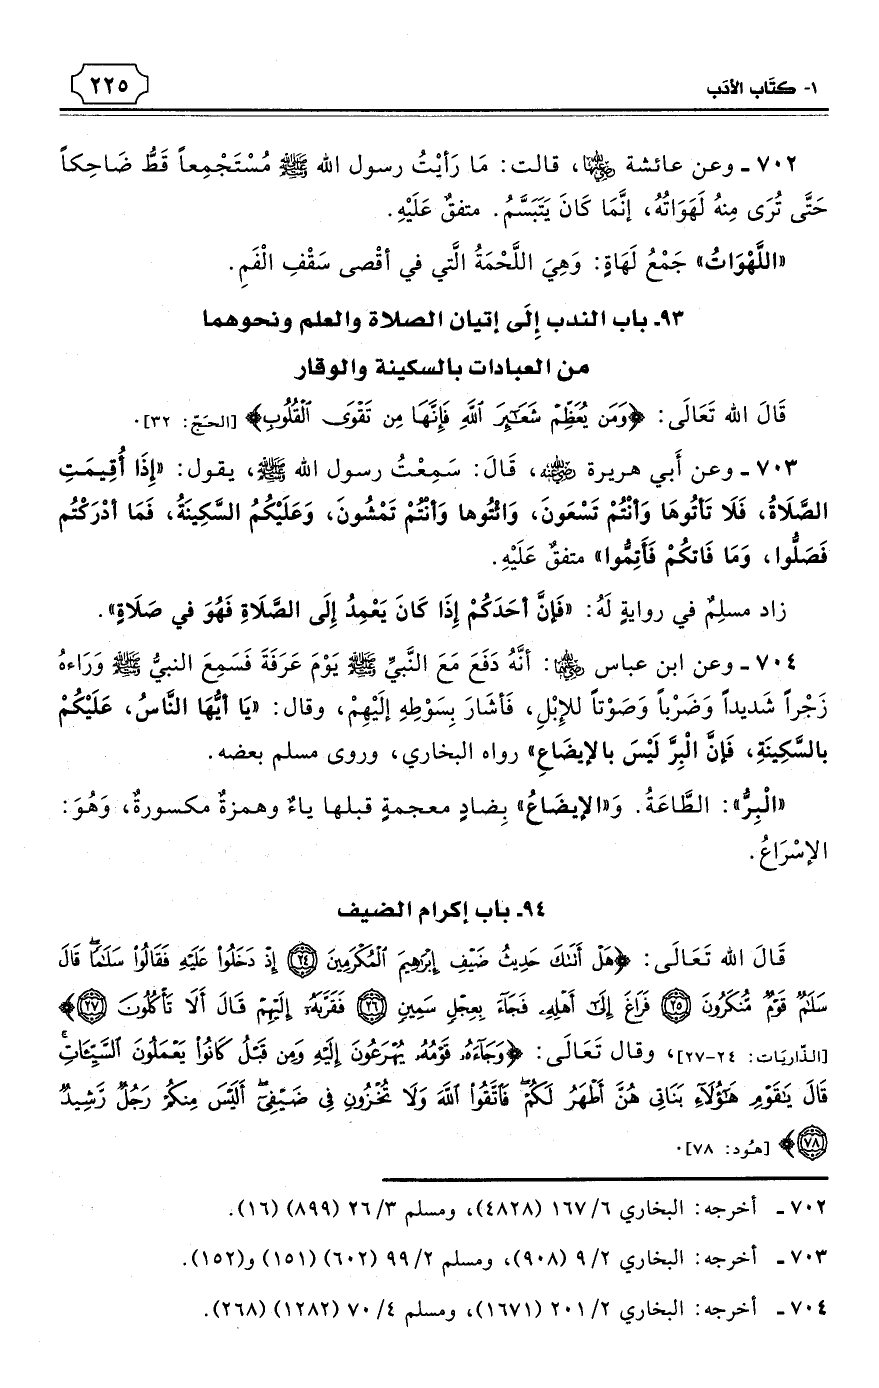 ١- كتَاب الأدَب
٢٢٥
٧٠٢ ـ وعن عائشة رضي الله عنها، قالت: مَا رَأيْتُ رسول الله ﷺ مُسْتَجْمِعاً قَطُّ ضَاحِكاً
حَتَّى تُرَى مِنهُ لَهَوَاتُهُ، إنَّمَا كَانَ يَتَبَسَّمُ. متفقٌ عَلَيْهِ.
«اللَّهْوَاتُ» جَمْعُ لَهَاةٍ: وَهِيَ اللَّحْمَةُ الَّتي في أقْصى سَقْفِ الْفَمِ.
٩٣ـ باب الندب إِلَى إتيان الصلاة والعلم ونحوهما
من العبادات بالسكينة والوقار
قَالَ الله تَعَالَى: ﴿وَمَن يُعَظِّمْ شَعَٰٓئِرَ ٱللَّهِ فَإِنَّهَا مِن تَقْوَى ٱلْقُلُوبِ﴾ [الحَجّ: ٣٢].
٧٠٣ ـ وعن أَبي هريرة رضي الله عنه، قَالَ: سَمِعْتُ رسول الله ﷺ، يقول: «إِذَا أُقِيمَتِ
الصَّلَاةُ، فَلَا تَأتُوهَا وَأنْتُمْ تَسْعَونَ، وَائْتُوها وَأنْتُمْ تَمْشُونَ، وَعَلَيْكُمُ السَّكِينَةُ، فَمَا أدْرَكْتُم
فَصَلُّوا، وَمَا فَاتكُمْ فَأَتِمُّوا» متفقٌ عَلَيْهِ.
زاد مسلِمٌ في روايةٍ لَهُ: «فَإنَّ أحَدَكُمْ إِذَا كَانَ يَعْمِدُ إِلَى الصَّلَاةِ فَهُوَ في صَلَاةٍ».
٧٠٤ ـ وعن ابن عباس رضي الله عنهما: أنَّهُ دَفَعَ مَعَ النَّبيِّ ﷺ يَوْمَ عَرَفَةَ فَسَمِعَ النبيُّ ﷺ وَرَاءهُ
زَجْراً شَديداً وَضَرْباً وَصَوْتاً للإبْلِ، فَأشَارَ بِسَوْطِهِ إلَيْهِمْ، وقال: «يَا أيُّهَا النَّاسُ، عَلَيْكُمْ
بالسَّكِينَةِ، فَإنَّ الْبِرَّ لَيْسَ بالإيضَاعِ» رواه البخاري، وروى مسلم بعضه.
«الْبِرُّ»: الطَّاعَةُ. وَ«الإيضَاعُ» بِضادٍ معجمةٍ قبلها ياءٌ وهمزةٌ مكسورةٌ، وَهُوَ:
الإسْرَاعُ.
٩٤ـ باب إكرام الضيف
قَالَ الله تَعَالَى: ﴿هَلْ أَتَىٰكَ حَدِيثُ ضَيْفِ إِبْرَٰهِيمَ ٱلْمُكْرَمِينَ ٢٤ إِذْ دَخَلُوا۟ عَلَيْهِ فَقَالُوا۟ سَلَٰمًا ۖ قَالَ
سَلَٰمٌ قَوْمٌ مُّنكَرُونَ ٢٥ فَرَاغَ إِلَىٰٓ أَهْلِهِۦ فَجَآءَ بِعِجْلٍ سَمِينٍ ٢٦ فَقَرَّبَهُۥٓ إِلَيْهِمْ قَالَ أَلَا تَأْكُلُونَ ٢٧﴾
[الذّاريَات: ٢٤-٢٧]، وقال تَعَالَى: ﴿وَجَآءَهُۥ قَوْمُهُۥ يُهْرَعُونَ إِلَيْهِ وَمِن قَبْلُ كَانُوا۟ يَعْمَلُونَ ٱلسَّيِّـَٔاتِ ۚ
قَالَ يَٰقَوْمِ هَٰٓؤُلَآءِ بَنَاتِى هُنَّ أَطْهَرُ لَكُمْ ۖ فَٱتَّقُوا۟ ٱللَّهَ وَلَا تُخْزُونِ فِى ضَيْفِىٓ ۖ أَلَيْسَ مِنكُمْ رَجُلٌ رَّشِيدٌ
٧٨﴾ [هُود: ٧٨].
٧٠٢ ـ أخرجه: البخاري ٦/ ١٦٧ (٤٨٢٨)، ومسلم ٣/ ٢٦ (٨٩٩) (١٦).
٧٠٣ ـ أخرجه: البخاري ٢/ ٩ (٩٠٨)، ومسلم ٢/ ٩٩ (٦٠٢) (١٥١) و(١٥٢).
٧٠٤ ـ أخرجه: البخاري ٢/ ٢٠١ (١٦٧١)، ومسلم ٤/ ٧٠ (١٢٨٢) (٢٦٨).